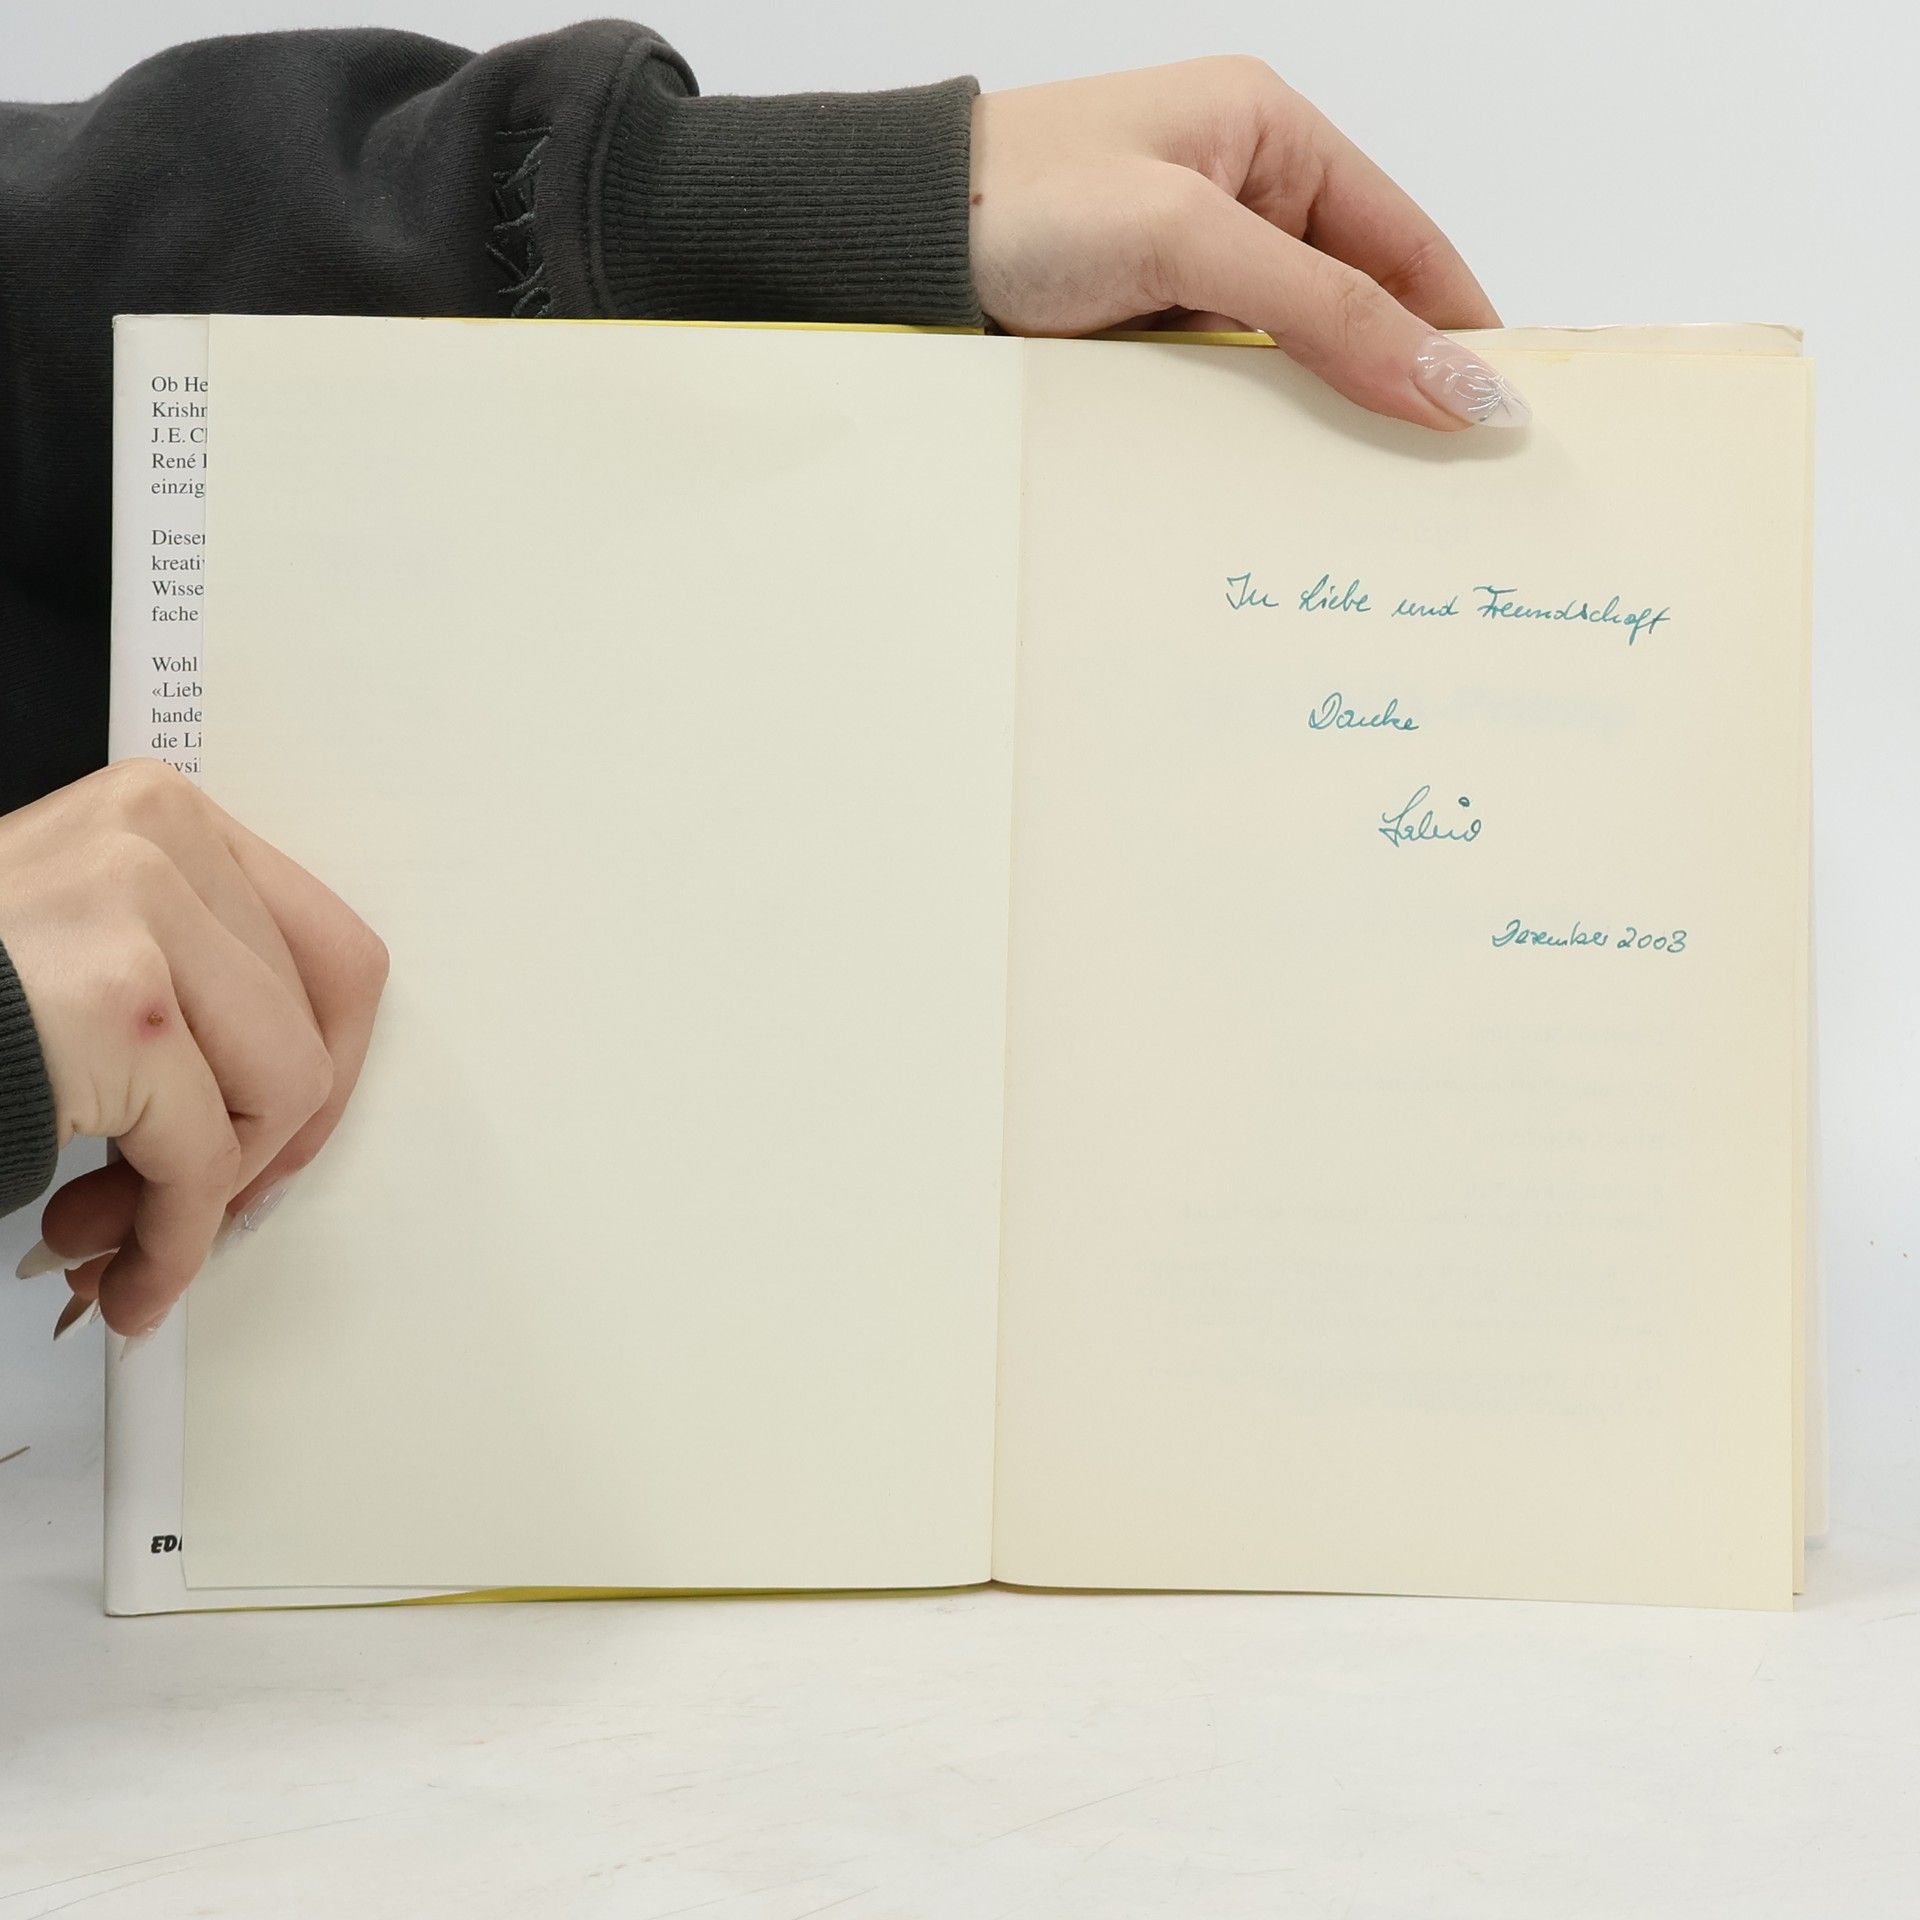 Ob He
Krishn
J.E. C
René
einzig
Dieser
kreativ
Wisse
fache
Wohl
«Lieb
hande
die Li
hysi
EDI
In Liebe und Freundschaft
Danke
Dezember 2003